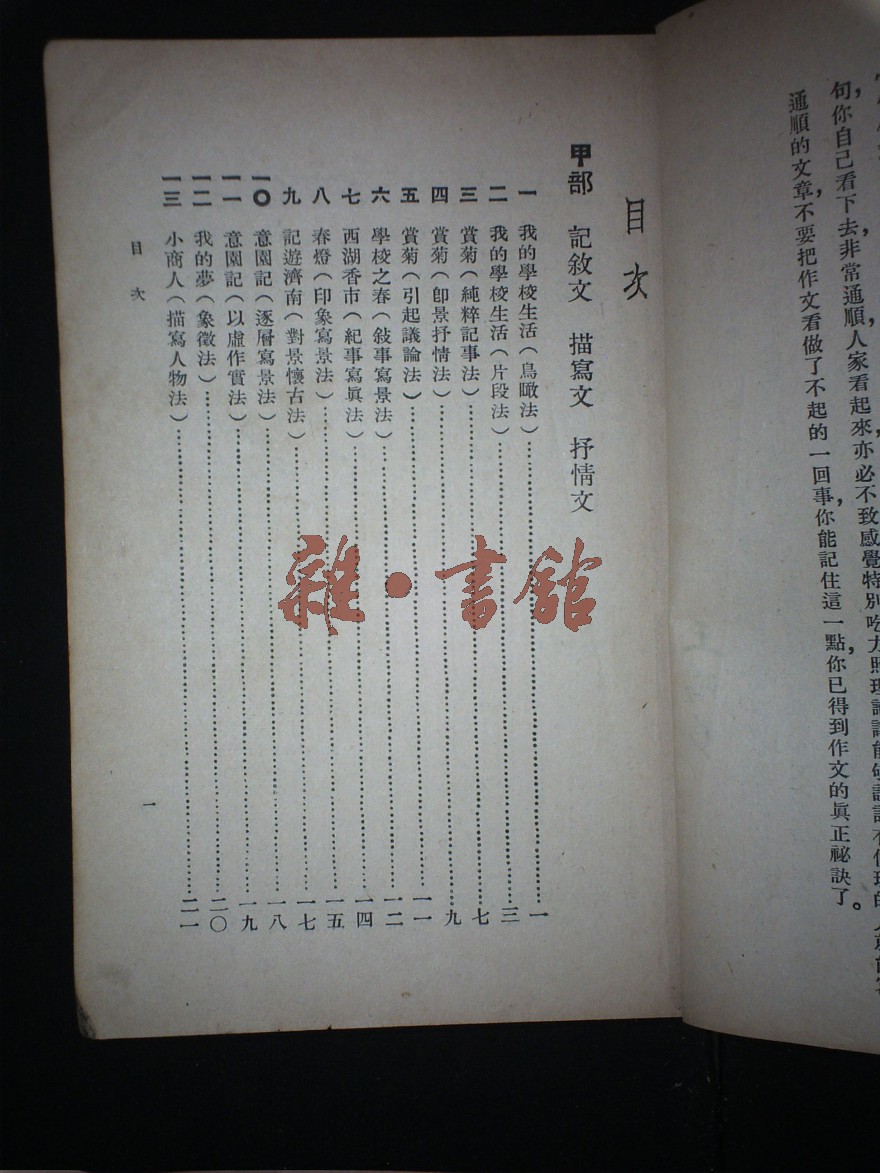 句，你自己看下去，非常通順，人家看起來，亦必不致感覺特別吃力，照理
通順的文章，不要把作文看做了不起的一回事，你能記住這一點，你已得到作文的眞正祕訣了。
目次
甲部　記敘文　描寫文　抒情文
一　我的學校生活（鳥瞰法）……一
二　我的學校生活（片段法）……三
三　賞菊（純粹記事法）……七
四　賞菊（卽景抒情法）……九
五　賞菊（引起議論法）……一一
六　學校之春（敍事寫景法）……一二
七　西湖香市（紀事寫眞法）……一四
八　春燈（印象寫景法）……一五
九　記遊濟南（對景懷古法）……一七
一〇　意園記（逐層寫景法）……一八
一一　意園記（以虛作實法）……一九
一二　我的夢（象徵法）……二〇
一三　小商人（描寫人物法）……二一
目次
一
雜・書館